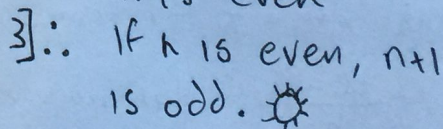 3]∴ If n is even, n+1
is odd.